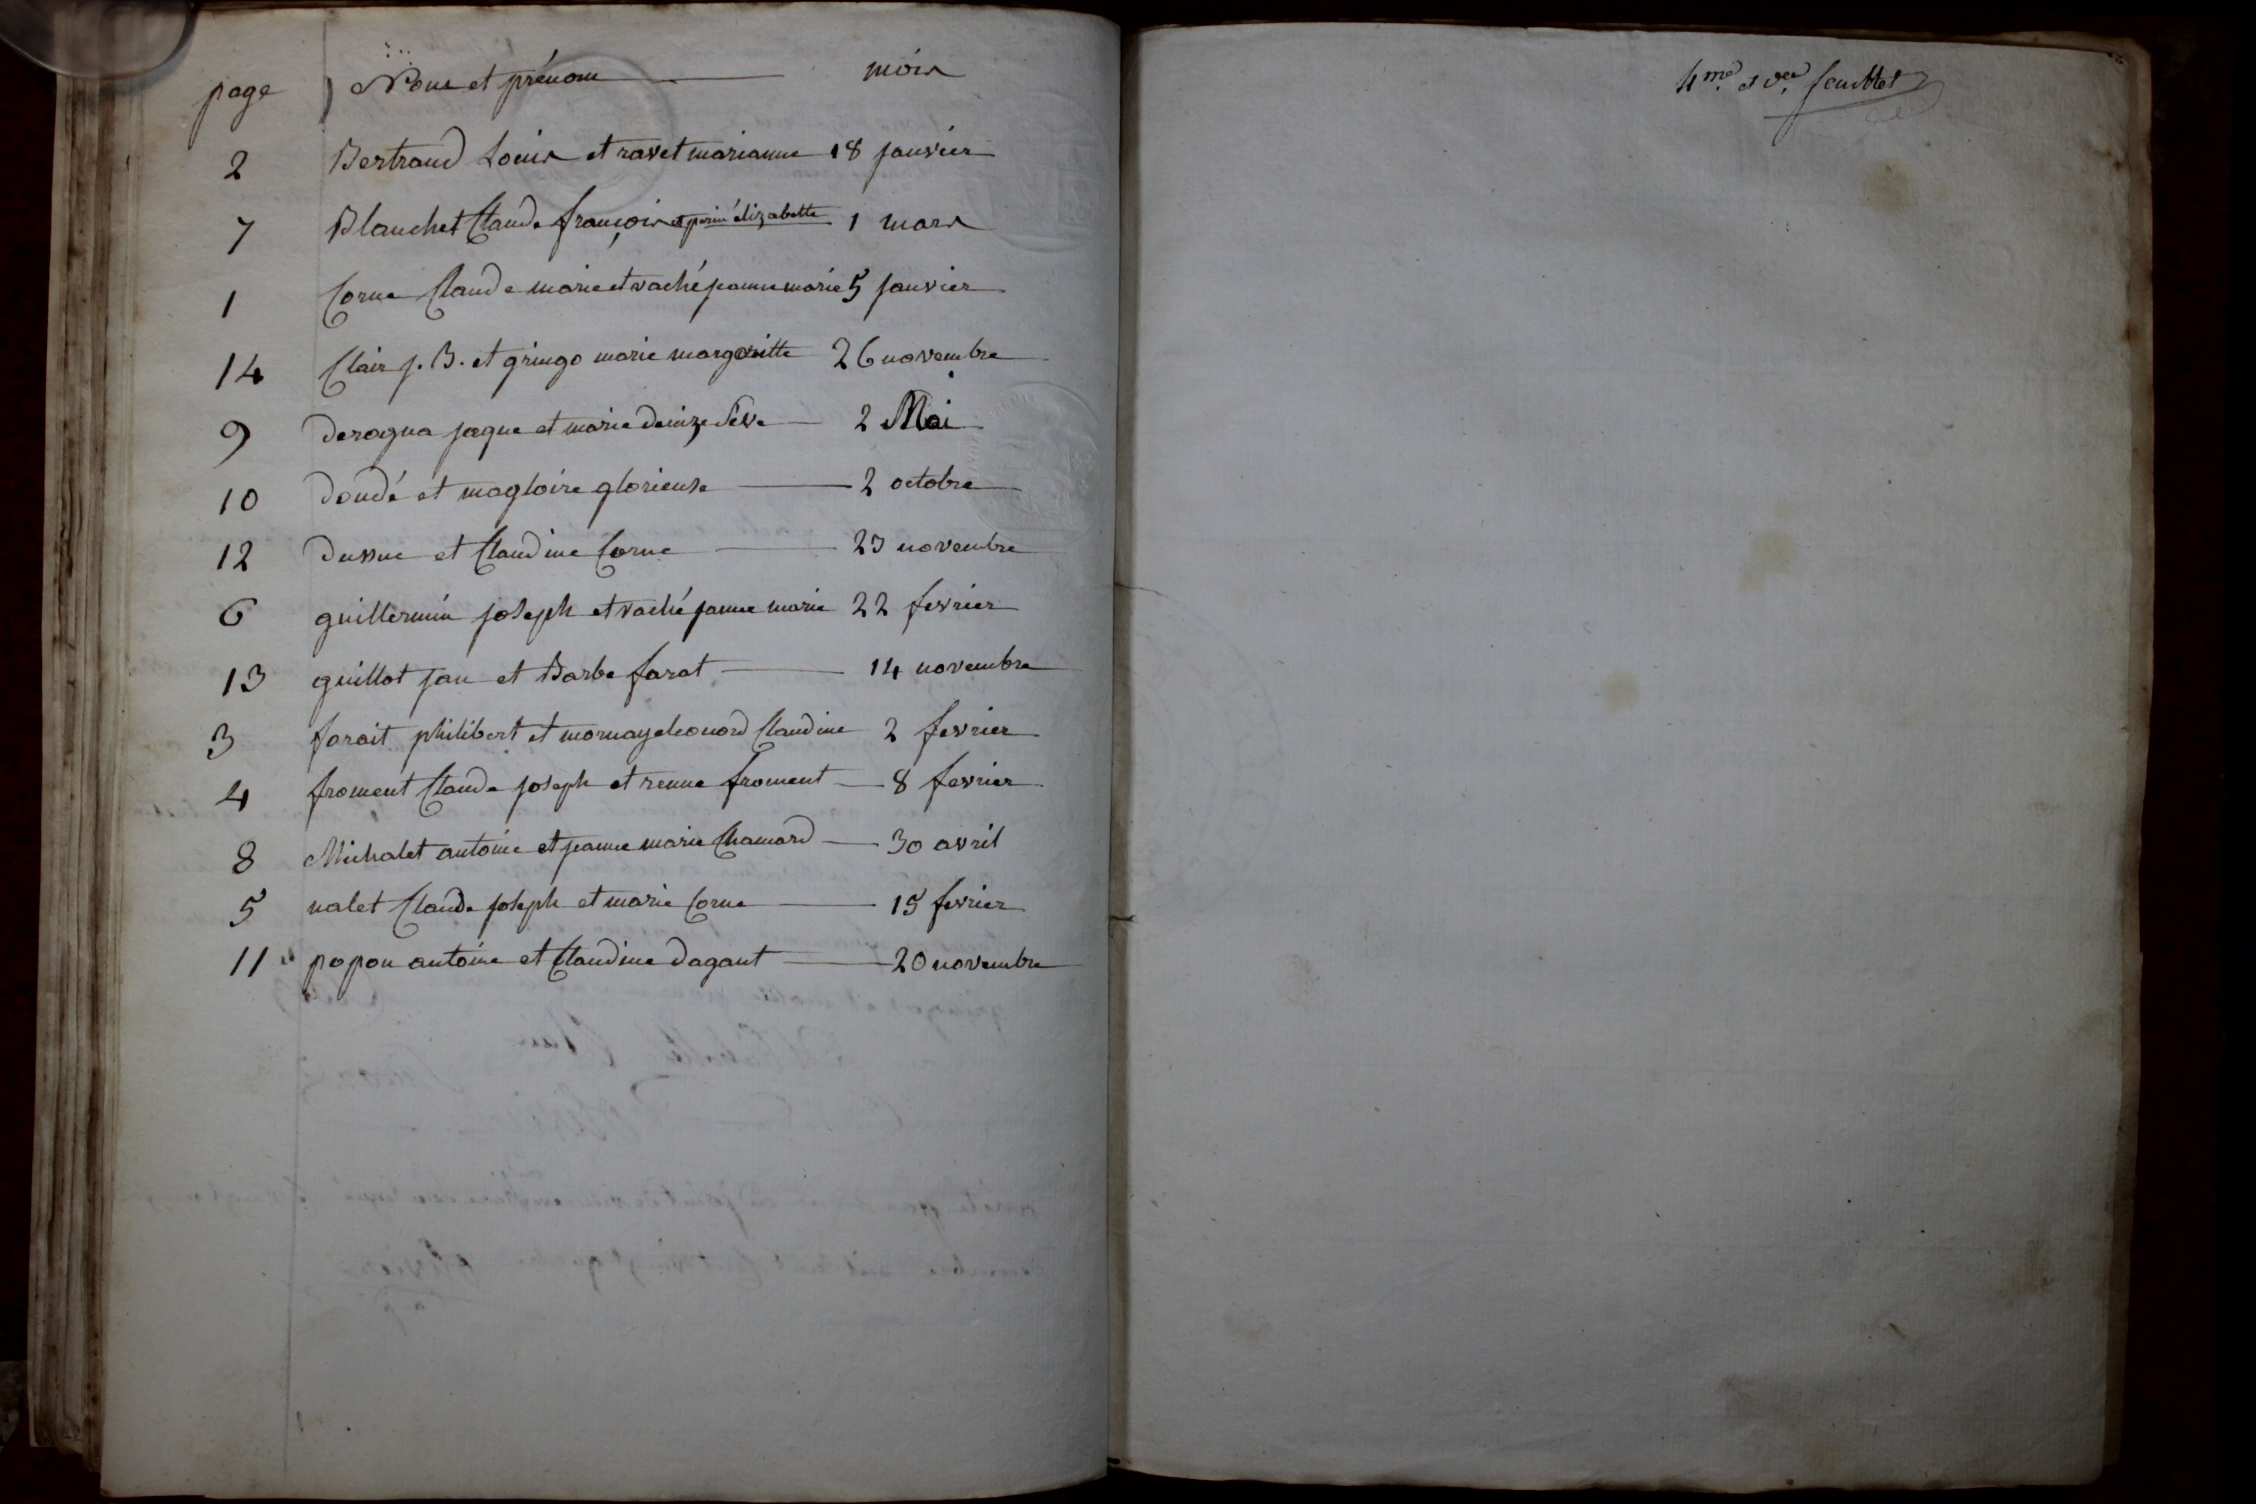 page Nom et prénom mois
2 Bertrand Louis et ravet marianne 18 janvier
7 Blanchet Claude françois et perin élizabette 1 mars
1 Corne Claude marie et vaché jeanne marie 5 janvier
14 Clair j. B. et gringo marie margoritte 26 novembre
9 deragna jaque et marie denize seve 2 Mai
10 doudé et magloire glorieuse 2 octobre
12 dussuc et Claudine Corne 23 novembre
6 guillermin joseph et vaché janne marie 22 fevrier
13 guillot jan et Barbe farat 14 novembre
3 forait philibert et mornay leonord Claudine 2 fevrier
4 froment Claude joseph et renne froment 8 fevrier
8 Michalet antoine et jeanne marie Chamard 30 avril
5 nalet Claude joseph et marie Corne 15 fevrier
11 popon antoine et Claudine dagant 20 novembre
4me et der feuillet